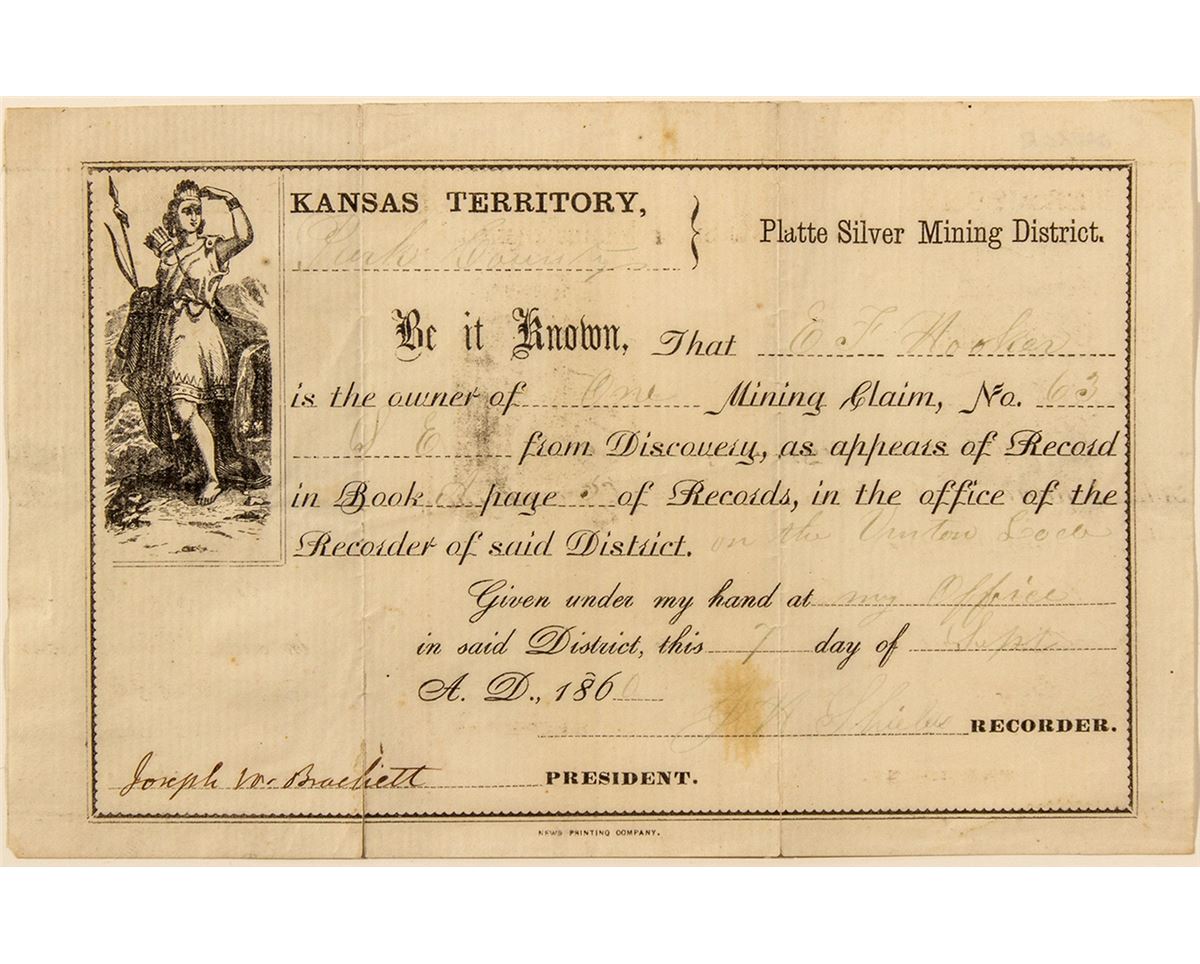 KANSAS TERRITORY,
Park County
Platte Silver Mining District.
Be it Known, That E F Hooker
is the owner of One Mining Claim, No. 63
S E from Discovery, as appears of Record
in Book A page of Records, in the office of the
Recorder of said District. on the Lode
Given under my hand at my Office
in said District, this 7 day of Sept
A. D., 1860
J H Shields RECORDER.
Joseph W. Brackett PRESIDENT.
NEWS PRINTING COMPANY.